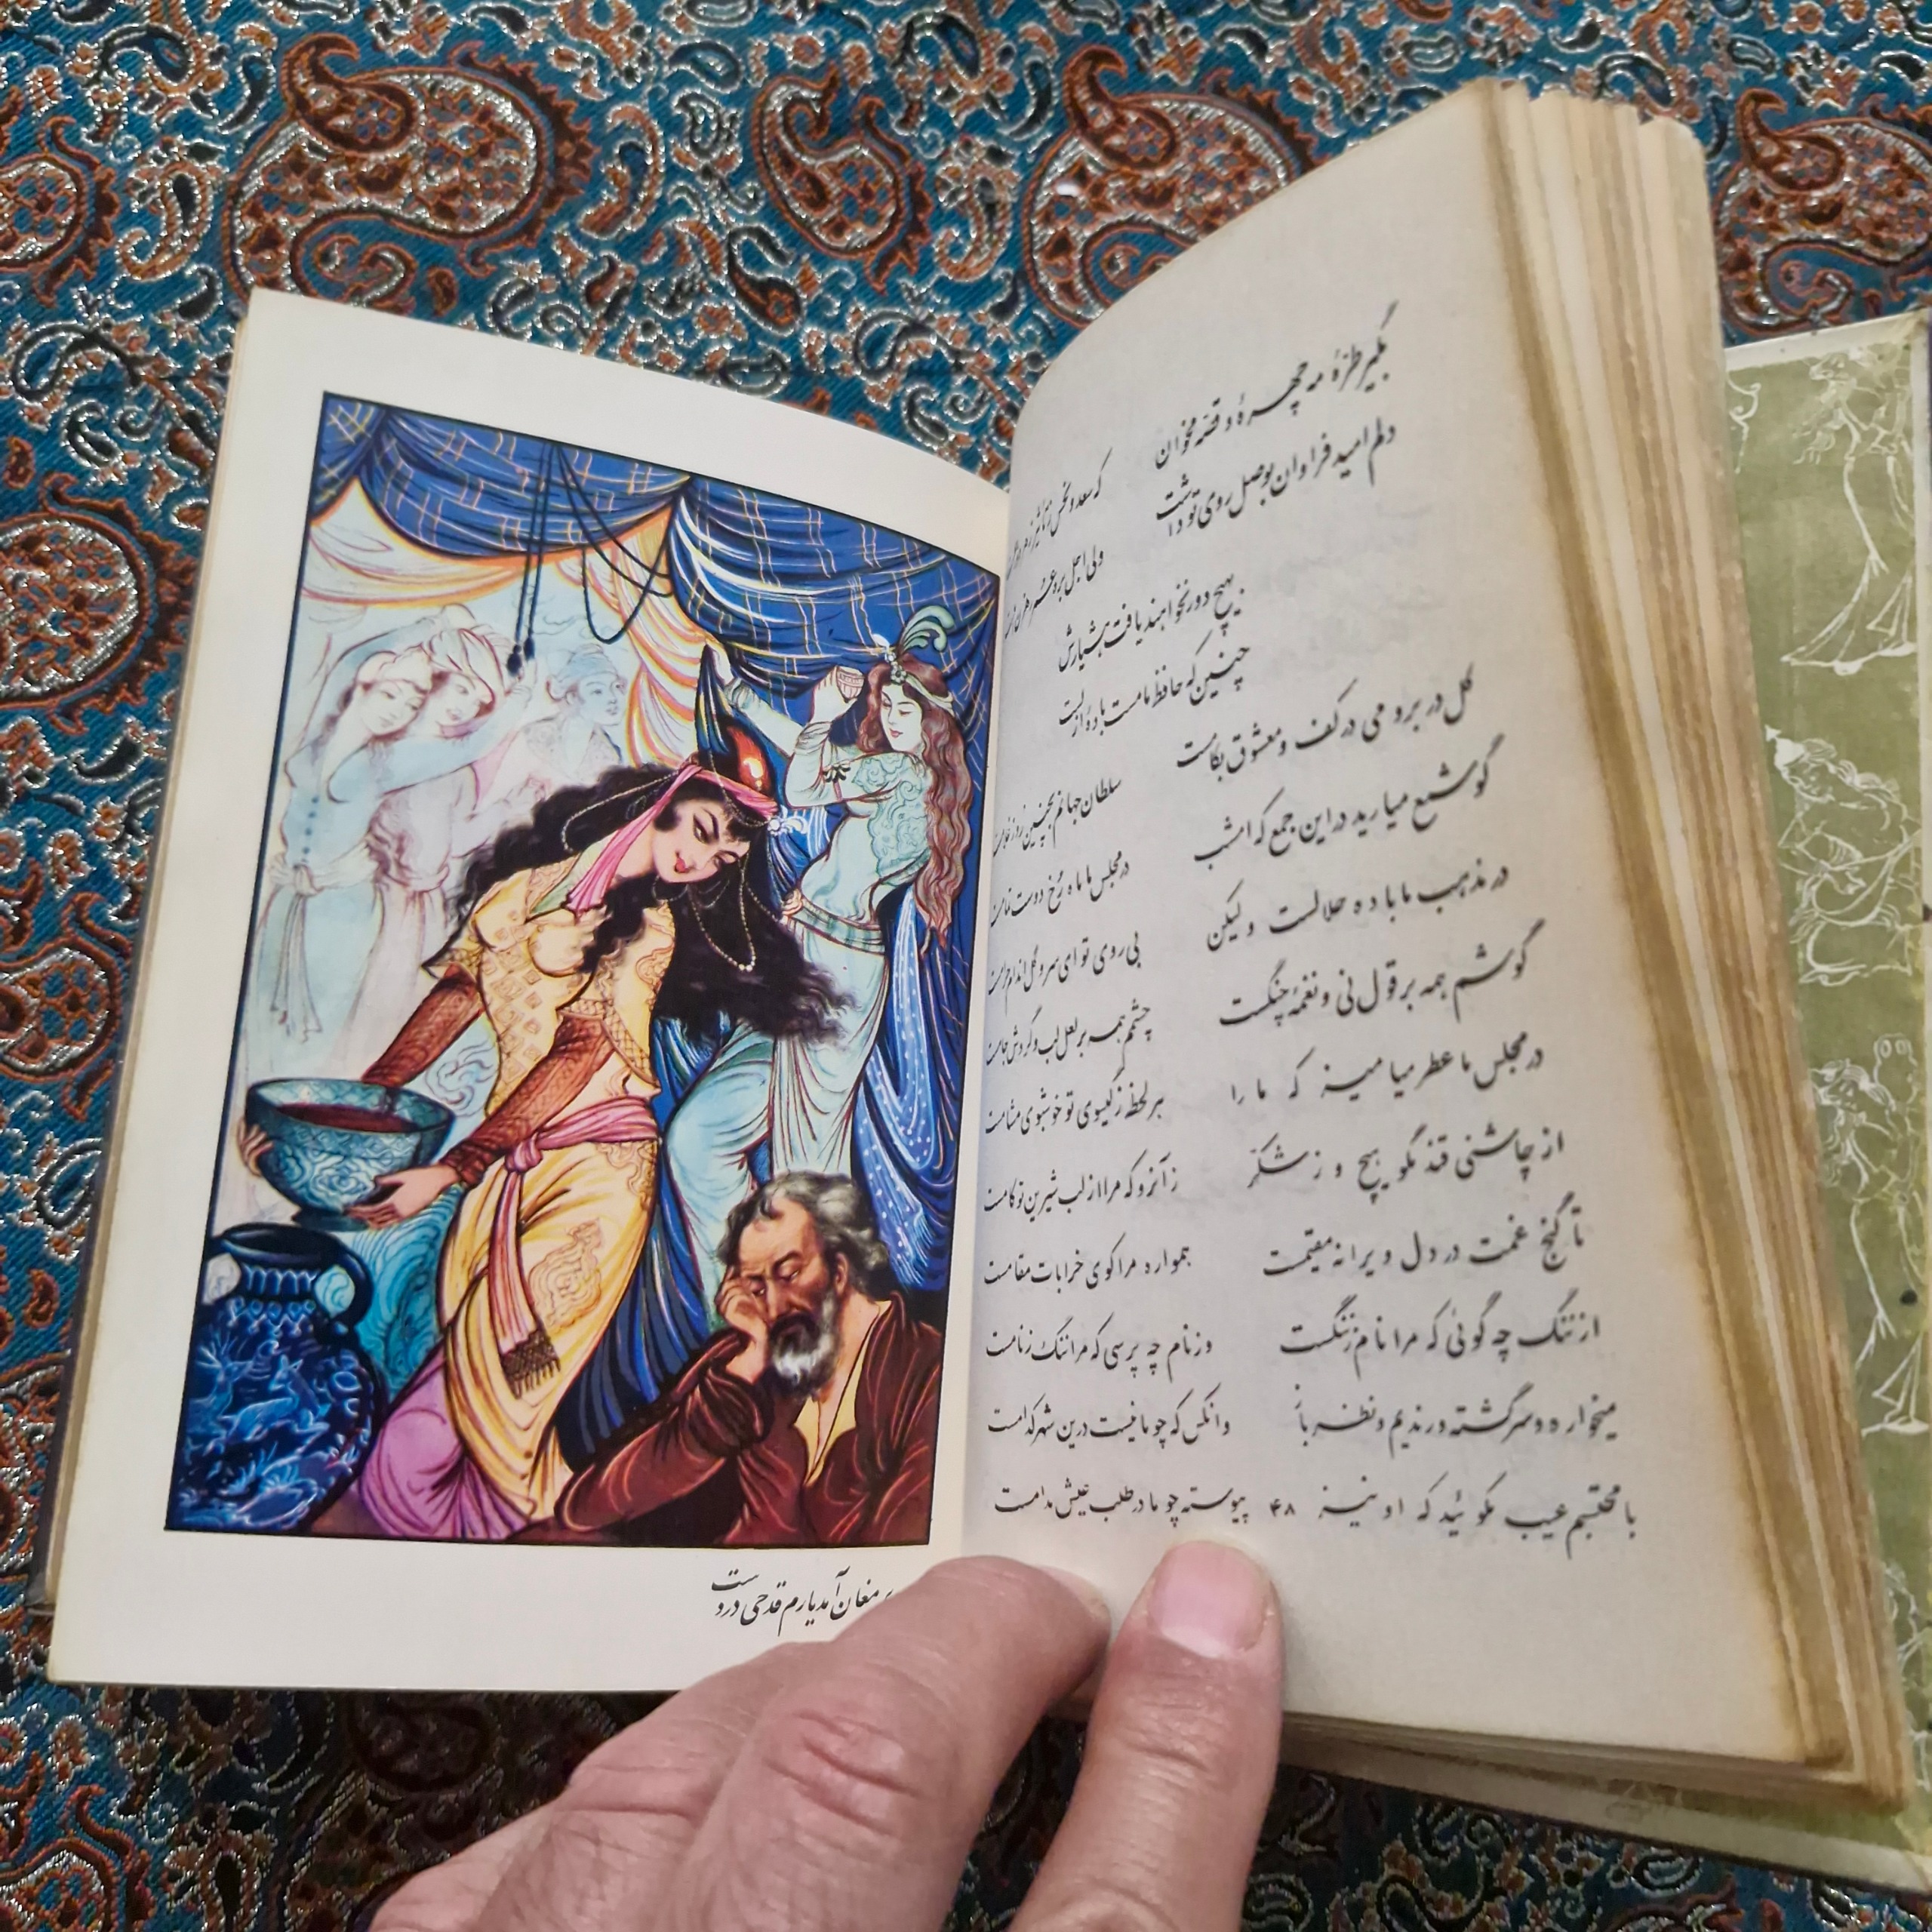 بگیر طرّهٔ مه چهرهٔ و قصّه مخوان که سعد و نحس ز تأثیر زهره و زحلست
دلم امید فراوان بوصل روی تو داشت ولی اجل بره عمر رهزن املست
بهیچ دور نخواهند یافت هشیارش
چنین که حافظ ما مست بادهٔ ازلست
گل در بر و می در کف و معشوق بکامست سلطان جهانم بچنین روز غلامست
گو شمع میارید در این جمع که امشب در مجلس ما ماه رخ دوست تمامست
در مذهب ما باده حلالست و لیکن بی روی تو ای سرو گل اندام حرامست
گوشم همه بر قول نی و نغمهٔ چنگست چشمم همه بر لعل لب و گردش جامست
در مجلس ما عطر میامیز که ما را هر لحظه ز گیسوی تو خوشبوی مشامست
از چاشنی قند مگو هیچ و ز شکّر زآنرو که مرا از لب شیرین تو کامست
تا گنج غمت در دل ویرانه مقیمست همواره مرا کوی خرابات مقامست
از ننگ چه گوئی که مرا نام ز ننگست وز نام چه پرسی که مرا ننگ ز نامست
میخواره و سرگشته و رندیم و نظر باز وانکس که چو ما نیست درین شهر کدامست
با محتسبم عیب مگوئید که او نیز پیوسته چو ما در طلب عیش مدامست
۴۸
مغان آمد یارم قدحی در دست